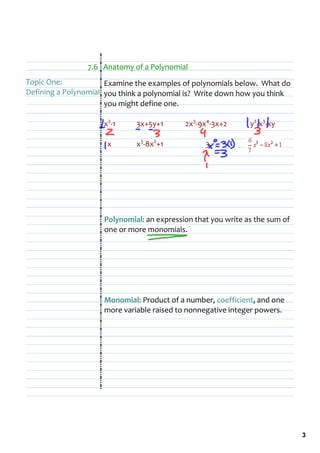 7.6 Anatomy of a Polynomial
Topic One:
Defining a Polynomial
Examine the examples of polynomials below. What do
you think a polynomial is? Write down how you think
you might define one.
x²-1 3x+5y+1 2x²-9x⁴-3x+2 y²+x³+xy
2 3 4 3
1x x³-8x²+1 3 x⁰=3(1) 6/7 x³ – 8x² + 1
=3
1
Polynomial: an expression that you write as the sum of
one or more monomials.
Monomial: Product of a number, coefficient, and one
more variable raised to nonnegative integer powers.
3